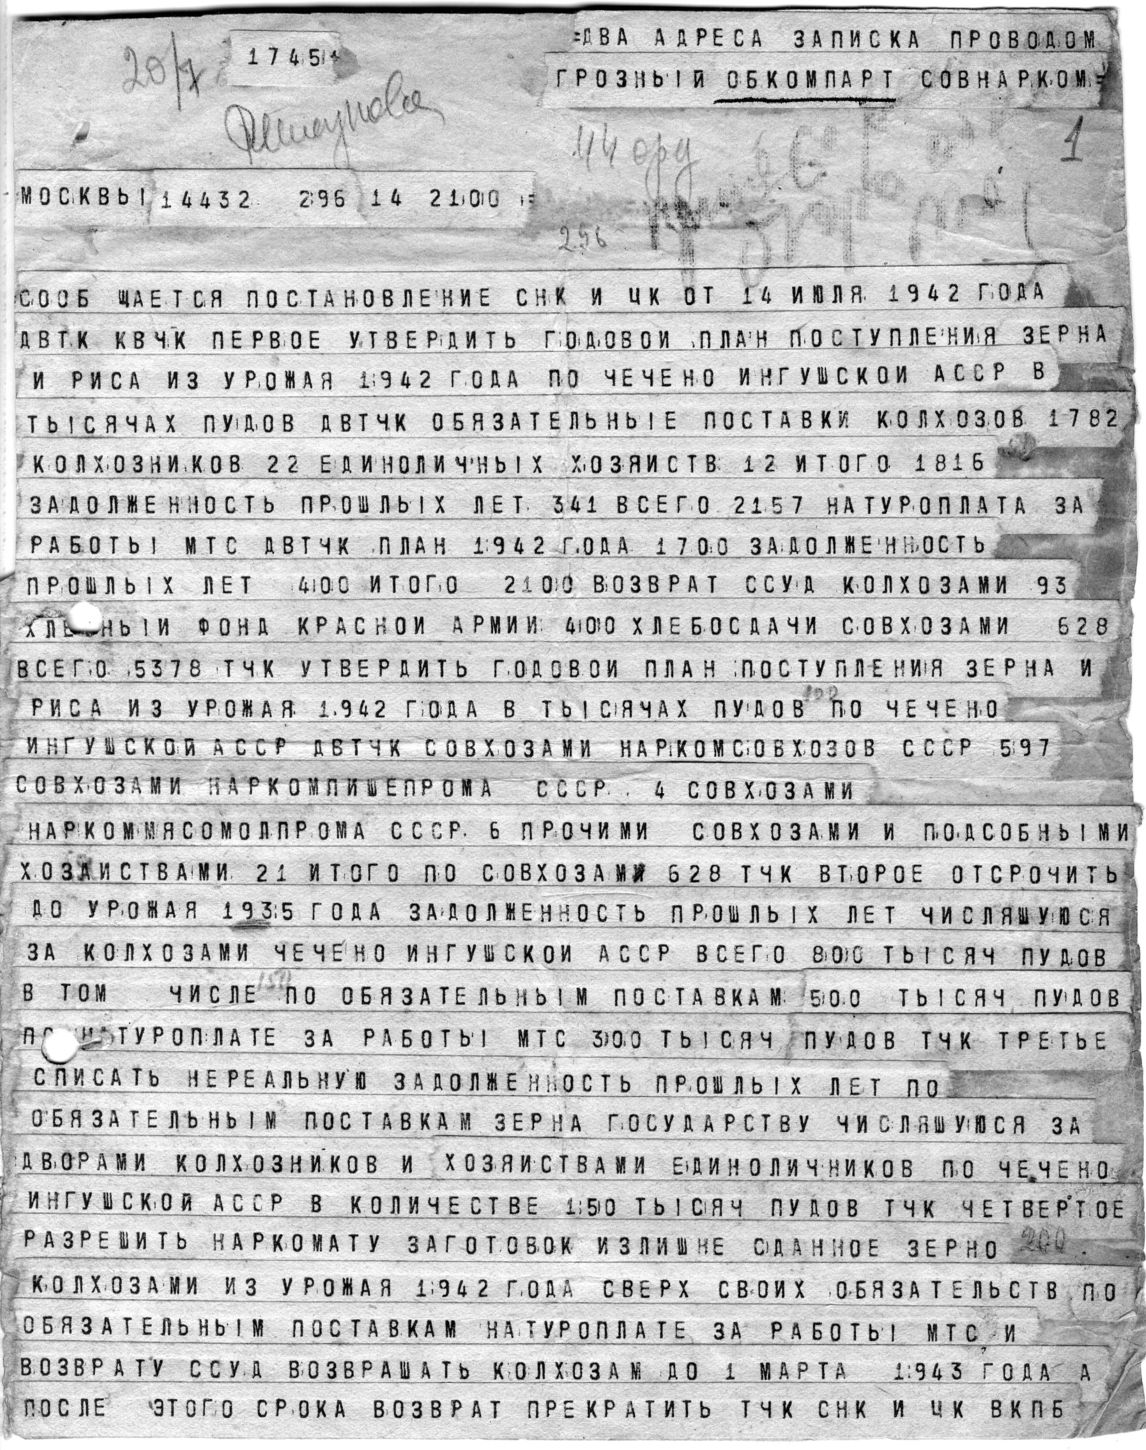 =ДВА АДРЕСА ЗАПИСКА ПРОВОДОМ
20/7 1745+
ГРОЗНЫЙ ОБКОМПАРТ СОВНАРКОМ=
44 орд
1
МОСКВЫ 14432 296 14 2100 =
296
СООБ ЩАЕТСЯ ПОСТАНОВЛЕНИЕ СНК И ЦК ОТ 14 ИЮЛЯ 1942 ГОДА
ДВТК КВЧК ПЕРВОЕ УТВЕРДИТЬ ГОДОВОИ ПЛАН ПОСТУПЛЕНИЯ ЗЕРНА
И РИСА ИЗ УРОЖАЯ 1942 ГОДА ПО ЧЕЧЕНО ИНГУШСКОИ АССР В
ТЫСЯЧАХ ПУДОВ ДВТЧК ОБЯЗАТЕЛЬНЫЕ ПОСТАВКИ КОЛХОЗОВ 1782
КОЛХОЗНИКОВ 22 ЕДИНОЛИЧНЫХ ХОЗЯИСТВ 12 ИТОГО 1816
ЗАДОЛЖЕННОСТЬ ПРОШЛЫХ ЛЕТ 341 ВСЕГО 2157 НАТУРОПЛАТА ЗА
РАБОТЫ МТС ДВТЧК ПЛАН 1942 ГОДА 1700 ЗАДОЛЖЕННОСТЬ
ПРОШЛЫХ ЛЕТ 400 ИТОГО 2100 ВОЗВРАТ ССУД КОЛХОЗАМИ 93
ХЛЕБНЫИ ФОНД КРАСНОИ АРМИИ 400 ХЛЕБОСДАЧИ СОВХОЗАМИ 628
ВСЕГО 5378 ТЧК УТВЕРДИТЬ ГОДОВОИ ПЛАН ПОСТУПЛЕНИЯ ЗЕРНА И
РИСА ИЗ УРОЖАЯ 1942 ГОДА В ТЫСЯЧАХ ПУДОВ ПО ЧЕЧЕНО
ИНГУШСКОЙ АССР ДВТЧК СОВХОЗАМИ НАРКОМСОВХОЗОВ СССР 597
СОВХОЗАМИ НАРКОМПИШЕПРОМА СССР 4 СОВХОЗАМИ
НАРКОММЯСОМОЛПРОМА СССР 6 ПРОЧИМИ СОВХОЗАМИ И ПОДСОБНЫМИ
ХОЗЯИСТВАМИ 21 ИТОГО ПО СОВХОЗАМИ 628 ТЧК ВТОРОЕ ОТСРОЧИТЬ
ДО УРОЖАЯ 1935 ГОДА ЗАДОЛЖЕННОСТЬ ПРОШЛЫХ ЛЕТ ЧИСЛЯШУЮСЯ
ЗА КОЛХОЗАМИ ЧЕЧЕНО ИНГУШСКОИ АССР ВСЕГО 800 ТЫСЯЧ ПУДОВ
В ТОМ ЧИСЛЕ ПО ОБЯЗАТЕЛЬНЫМ ПОСТАВКАМ 500 ТЫСЯЧ ПУДОВ
ПО НАТУРОПЛАТЕ ЗА РАБОТЫ МТС 300 ТЫСЯЧ ПУДОВ ТЧК ТРЕТЬЕ
СПИСАТЬ НЕРЕАЛЬНУЮ ЗАДОЛЖЕННОСТЬ ПРОШЛЫХ ЛЕТ ПО
ОБЯЗАТЕЛЬНЫМ ПОСТАВКАМ ЗЕРНА ГОСУДАРСТВУ ЧИСЛЯШУЮСЯ ЗА
ДВОРАМИ КОЛХОЗНИКОВ И ХОЗЯИСТВАМИ ЕДИНОЛИЧНИКОВ ПО ЧЕЧЕНО
ИНГУШСКОЙ АССР В КОЛИЧЕСТВЕ 150 ТЫСЯЧ ПУДОВ ТЧК ЧЕТВЕРТОЕ
РАЗРЕШИТЬ НАРКОМАТУ ЗАГОТОВОК ИЗЛИШНЕ СДАННОЕ ЗЕРНО 200
КОЛХОЗАМИ ИЗ УРОЖАЯ 1942 ГОДА СВЕРХ СВОИХ ОБЯЗАТЕЛЬСТВ ПО
ОБЯЗАТЕЛЬНЫМ ПОСТАВКАМ НАТУРОПЛАТЕ ЗА РАБОТЫ МТС И
ВОЗВРАТУ ССУД ВОЗВРАШАТЬ КОЛХОЗАМ ДО 1 МАРТА 1943 ГОДА А
ПОСЛЕ ЭТОГО СРОКА ВОЗВРАТ ПРЕКРАТИТЬ ТЧК СНК И ЦК ВКПБ